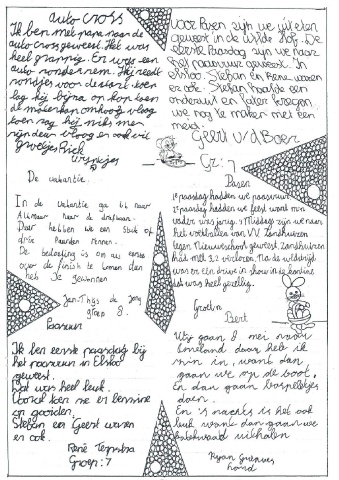 auto cross
Ik ben met papa naar de
auto cross geweest. Het was
heel grappig. Er was een
auto zonder rem. Hij reedt
rondjes voor de start. toen
lag hij bijna op kop toen
de motorkap omhoog vloog
toen zag hij niks meer
zijn deur vloog en ook uit
groetjes Rick
Wijnstjes
De vakantie.
In de vakantie ga ik naar
Alkmaar naar de drafbaan.
Daar hebben we een stuk of
drie Paarden rennen.
De bedoeling is om als eerste
over de finish te komen dan
heb je gewonnen
Jan-Thijs de Jong
groep 8.
Paasvuur
Ik ben eerste paasdag bij
het paasvuur in Elsloo
geweest.
Dat was heel leuk.
Vooral toen ze er benzine
op gooiden.
Stefan en Geert waren
er ook.
René Terpstra
Groep: 7
voor Pasen zijn we uit eten
geweest in de wilde hof. De
eerste Paasdag zijn we naar
het paasvuur geweest. In
elsloo. Stefan en René waren
er ook. Stefan haalde een
en later kregen
we nog te maken met een
meid.
Geert v/d Boer
Gr: 7
Pasen
1e paasdag hadden we paasvuur
2e paasdag hadden we feest want mijn
vader was jarig. 's Middags zijn we naar
het voetballen van VV Zandhuizen
tegen Nieuweschoot geweest. Zandhuizen
had met 3-2 verloren. Na de wedstrijd
was er een drive in show in de kantine
dat was heel gezellig.
Groeten
Bert
Wij gaan 8 mei naar
Ameland daar heb ik
zin in, want dan
gaan we op de boot.
En dan gaan bosspelletjes
doen.
En 's nachts is het ook
leuk want dan gaan we
kattekwaad uithalen
Ryan